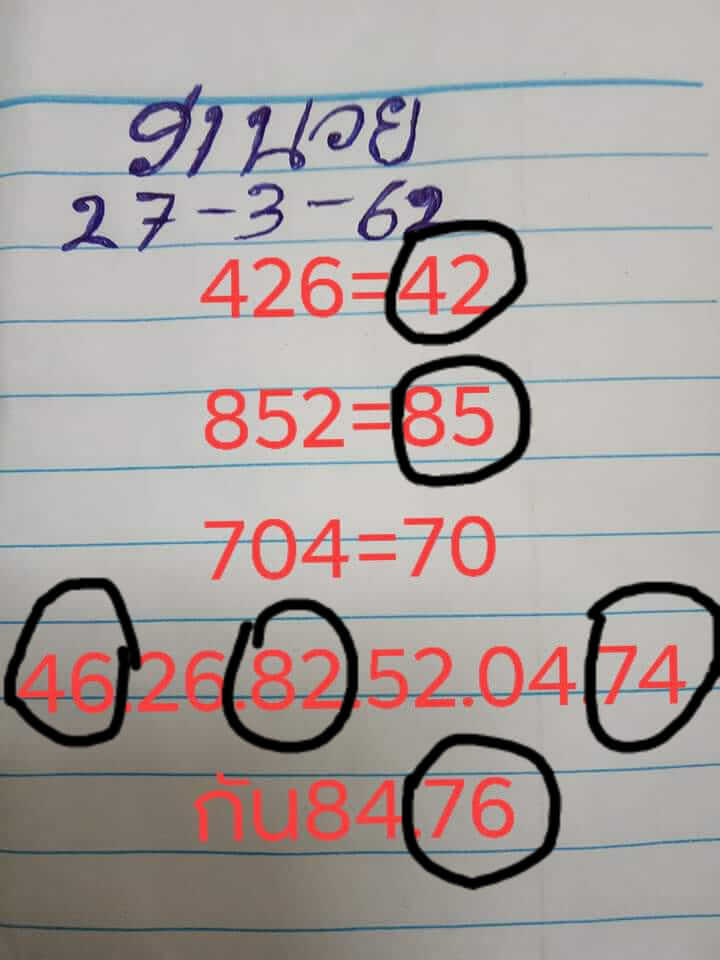 ฮานวย
27-3-62
426=42
852=85
704=70
46.26.82.52.04.74
กัน84.76